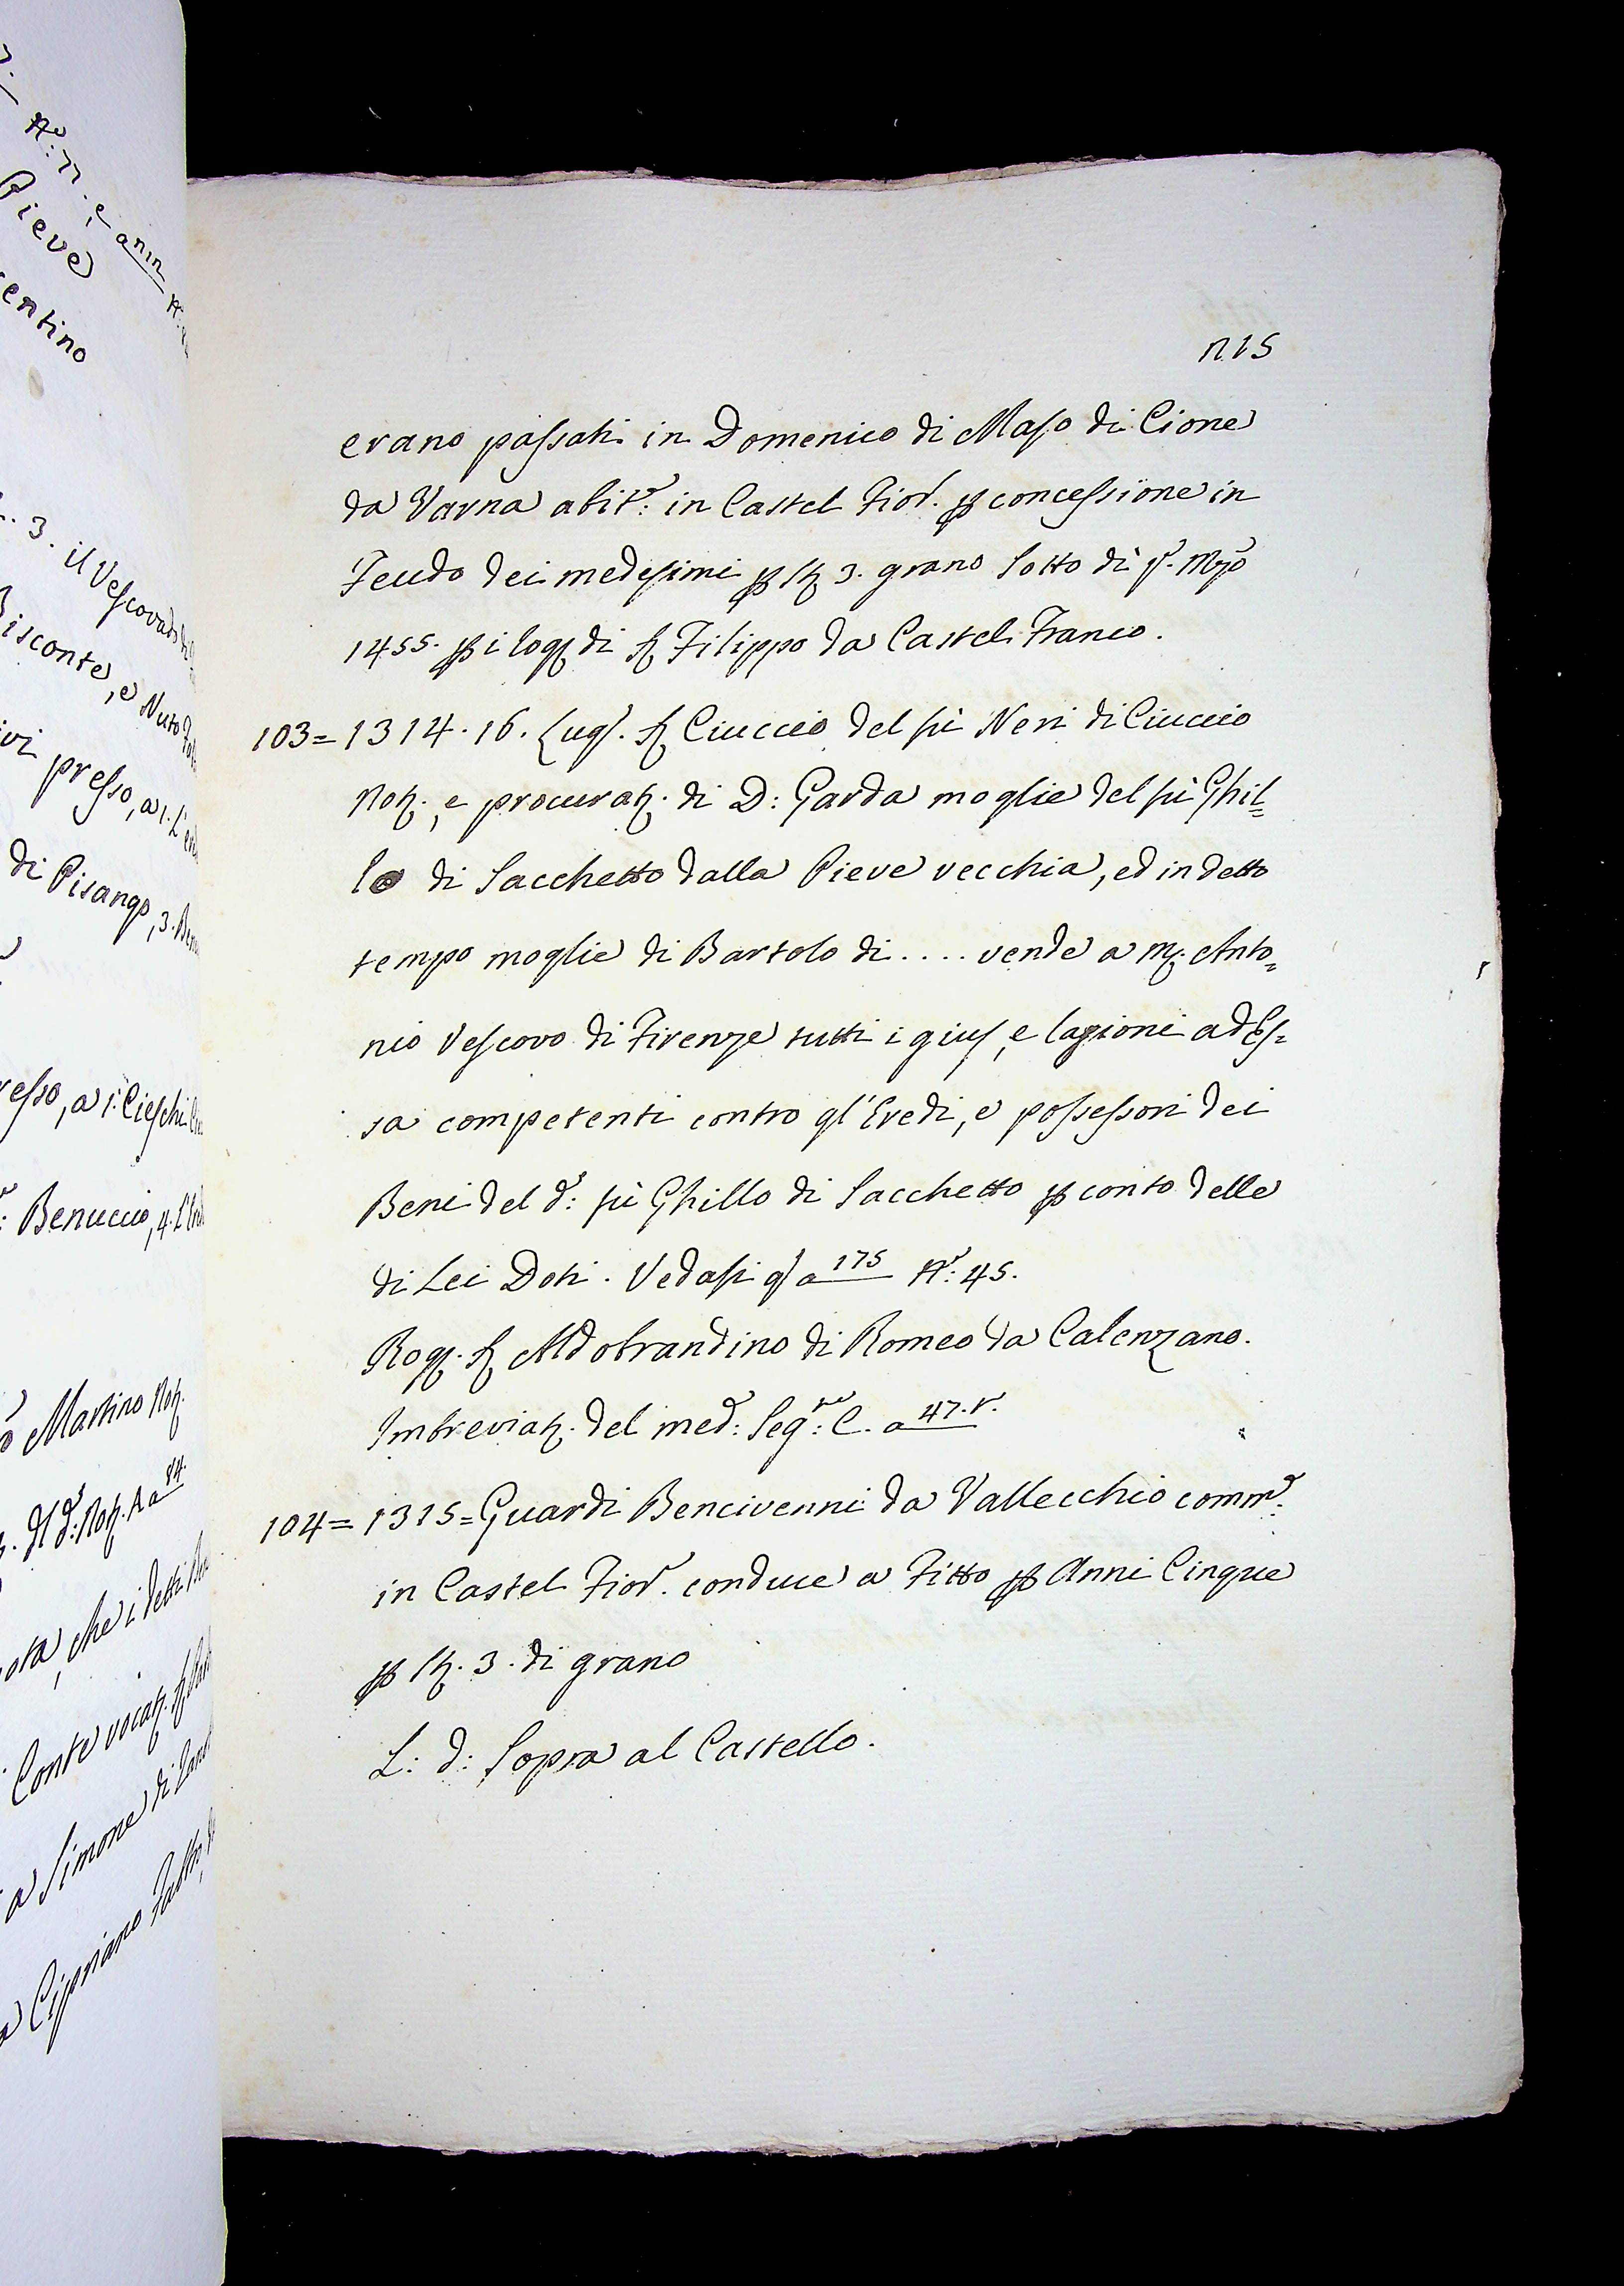 n 15
erano passati in Domenico di Maso di Cione
da Varna abit.e: in Castel Fior.o p concessione in
Feudo dei medesimi p st. 3. grano sotto dì p.o Mgo
1455. p i rog. di S. Filippo da Castel Franco.
103= 1314. 16. Lug. S. Ciuccio del fù Neri di Ciuccio
Not., e procurat. di D: Garda moglie del fù Ghil=
lo di Sacchetto dalla Pieve vecchia, ed in detto
tempo moglie di Bartolo di .... vende a M. Anto=
nio Vescovo di Firenze tutti i gius, e ragioni ad Es=
sa competenti contro gl'Eredi, e possessori dei
Beni del d.o: fù Ghillo di Sacchetto p conto delle
di Lei Doti. Vedasi q. a 175 N.o: 45.
Rog. S. Aldobrandino di Romeo da Calenzano.
Imbreviat. del med.o: Seg.re: C. a 47. r.
104= 1315= Guardi Bencivenni da Vallecchio comm.e:
in Castel Fior.o conduce a Fitto p Anni Cinque
p st. 3. di grano
L: d: Sopra al Castello.
Pieve
3. il Vescovado
isconte, e Nuto
presso, a 1. L'
di Pisango, 3.
resso, a 1:
Benuccio, 4.
Martino Not.
che i detti
Conte vocat.
a Simone di
a Cipriano